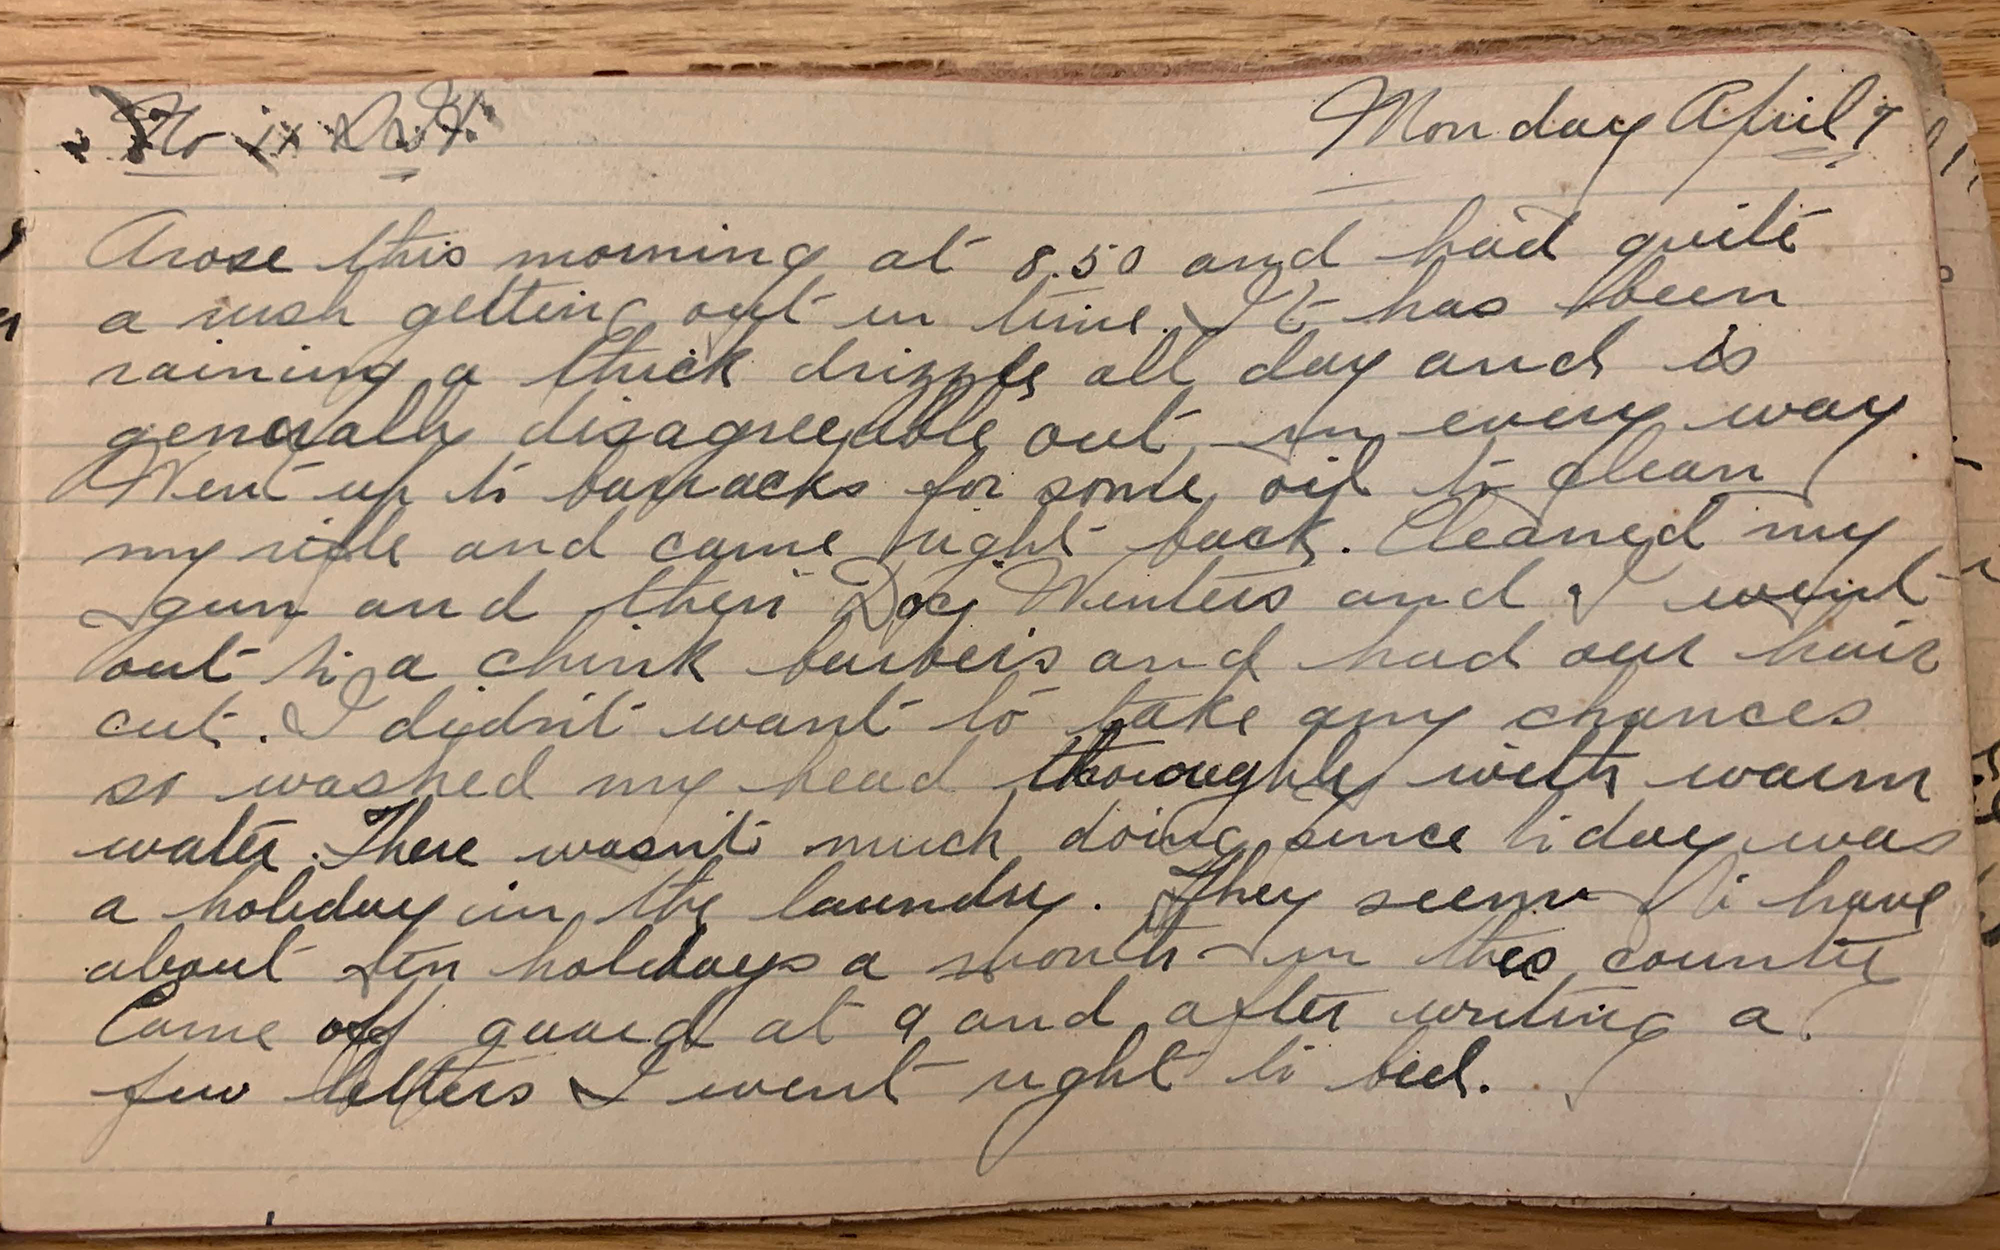 Monday April 7
Arose this morning at 8.50 and had quite
a rush getting out in time. It has been
raining a thick drizzle all day and is
generally disagreeable out in every way
Went up to barracks for some oil to clean
my rifle and came right back. Cleaned my
gun and then Doc Winters and I went
out to a chink barbers and had our hair
cut. I didn't want to take any chances
so washed my head thoroughly with warm
water. There wasn't much doing since today was
a holiday in the laundry. They seem to have
about ten holidays a month in this country
Came off guard at 9 and after writing a
few letters I went right to bed.